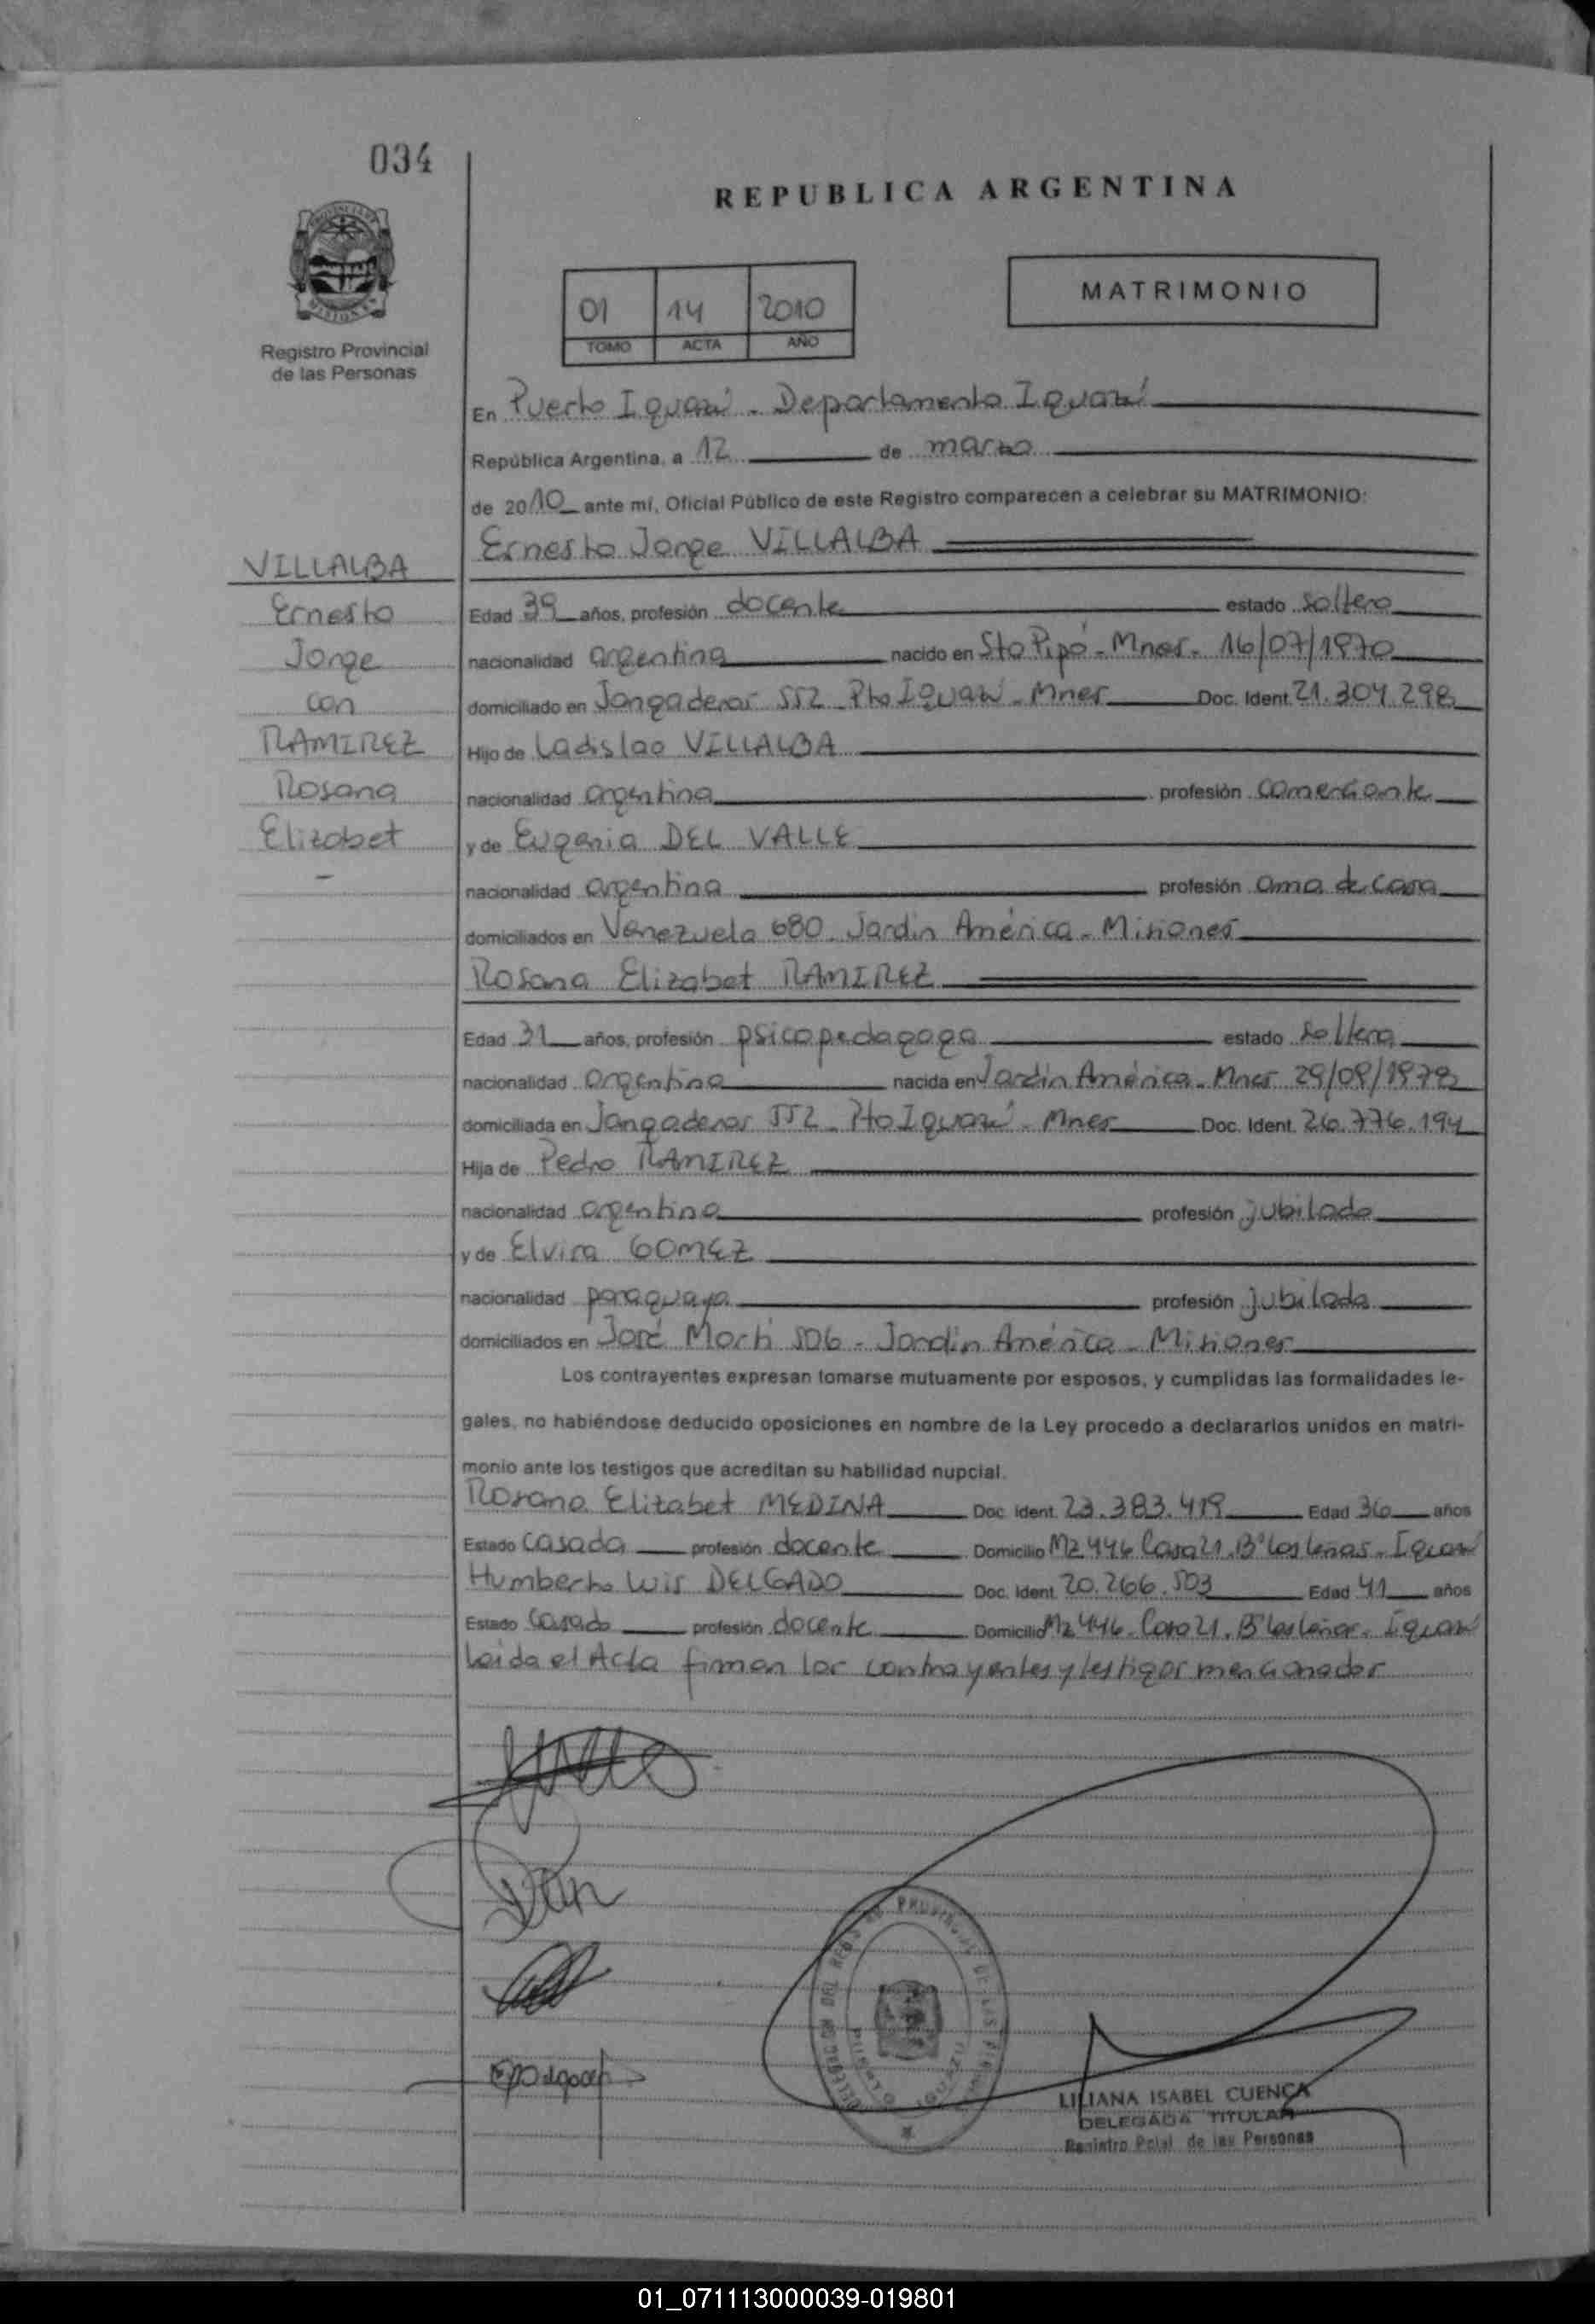 034
REPUBLICA ARGENTINA
MATRIMONIO
01 14 2010
TOMO ACTA AÑO
Registro Provincial
de las Personas
En Puerto Iguazú - Departamento Iguazú
República Argentina, a 12 de marzo
de 2010 ante mí, Oficial Público de este Registro comparecen a celebrar su MATRIMONIO:
Ernesto Jorge VILLALBA
VILLALBA
Ernesto
Jorge
con
RAMIREZ
Rosana
Elizabet
-
Edad 39 años, profesión docente estado soltero
nacionalidad argentina nacido en Sto Pipó - Mnes - 16/07/1970
domiciliado en Jangaderos 552 - Pto Iguazú - Mnes Doc. Ident. 21.304.298
Hijo de Ladislao VILLALBA
nacionalidad argentina profesión comerciante
y de Eugenia DEL VALLE
nacionalidad argentina profesión ama de casa
domiciliados en Venezuela 680 - Jardín América - Misiones
Rosana Elizabet RAMIREZ
Edad 31 años, profesión psicopedagoga estado soltera
nacionalidad argentina nacida en Jardín América - Mnes
domiciliada en Jangaderos 552 - Pto Iguazú - Mnes Doc. Ident. 26.776.194
Hija de Pedro RAMIREZ
nacionalidad argentina profesión jubilado
y de Elvira GOMEZ
nacionalidad paraguaya profesión jubilada
domiciliados en José Martí 506 - Jardín América - Misiones
Los contrayentes expresan tomarse mutuamente por esposos, y cumplidas las formalidades le-
gales, no habiéndose deducido oposiciones en nombre de la Ley procedo a declararlos unidos en matri-
monio ante los testigos que acreditan su habilidad nupcial.
Rosana Elizabet MEDINA Doc. Ident. 23.383.419 Edad 36 años
Estado casada profesión docente Domicilio Mz 446 Casa 21. Bº Las Leñas - Iguazú
Humberto Luis DELGADO Doc. Ident. 20.266.503 Edad 41 años
Estado casado profesión docente Domicilio Mz 446 - Casa 21. Bº Las Leñas - Iguazú
Leida el Acta firman los contrayentes y testigos mencionados
LILIANA ISABEL CUENCA
DELEGADA TITULAR
Registro Pcial. de las Personas
01_071113000039-019801